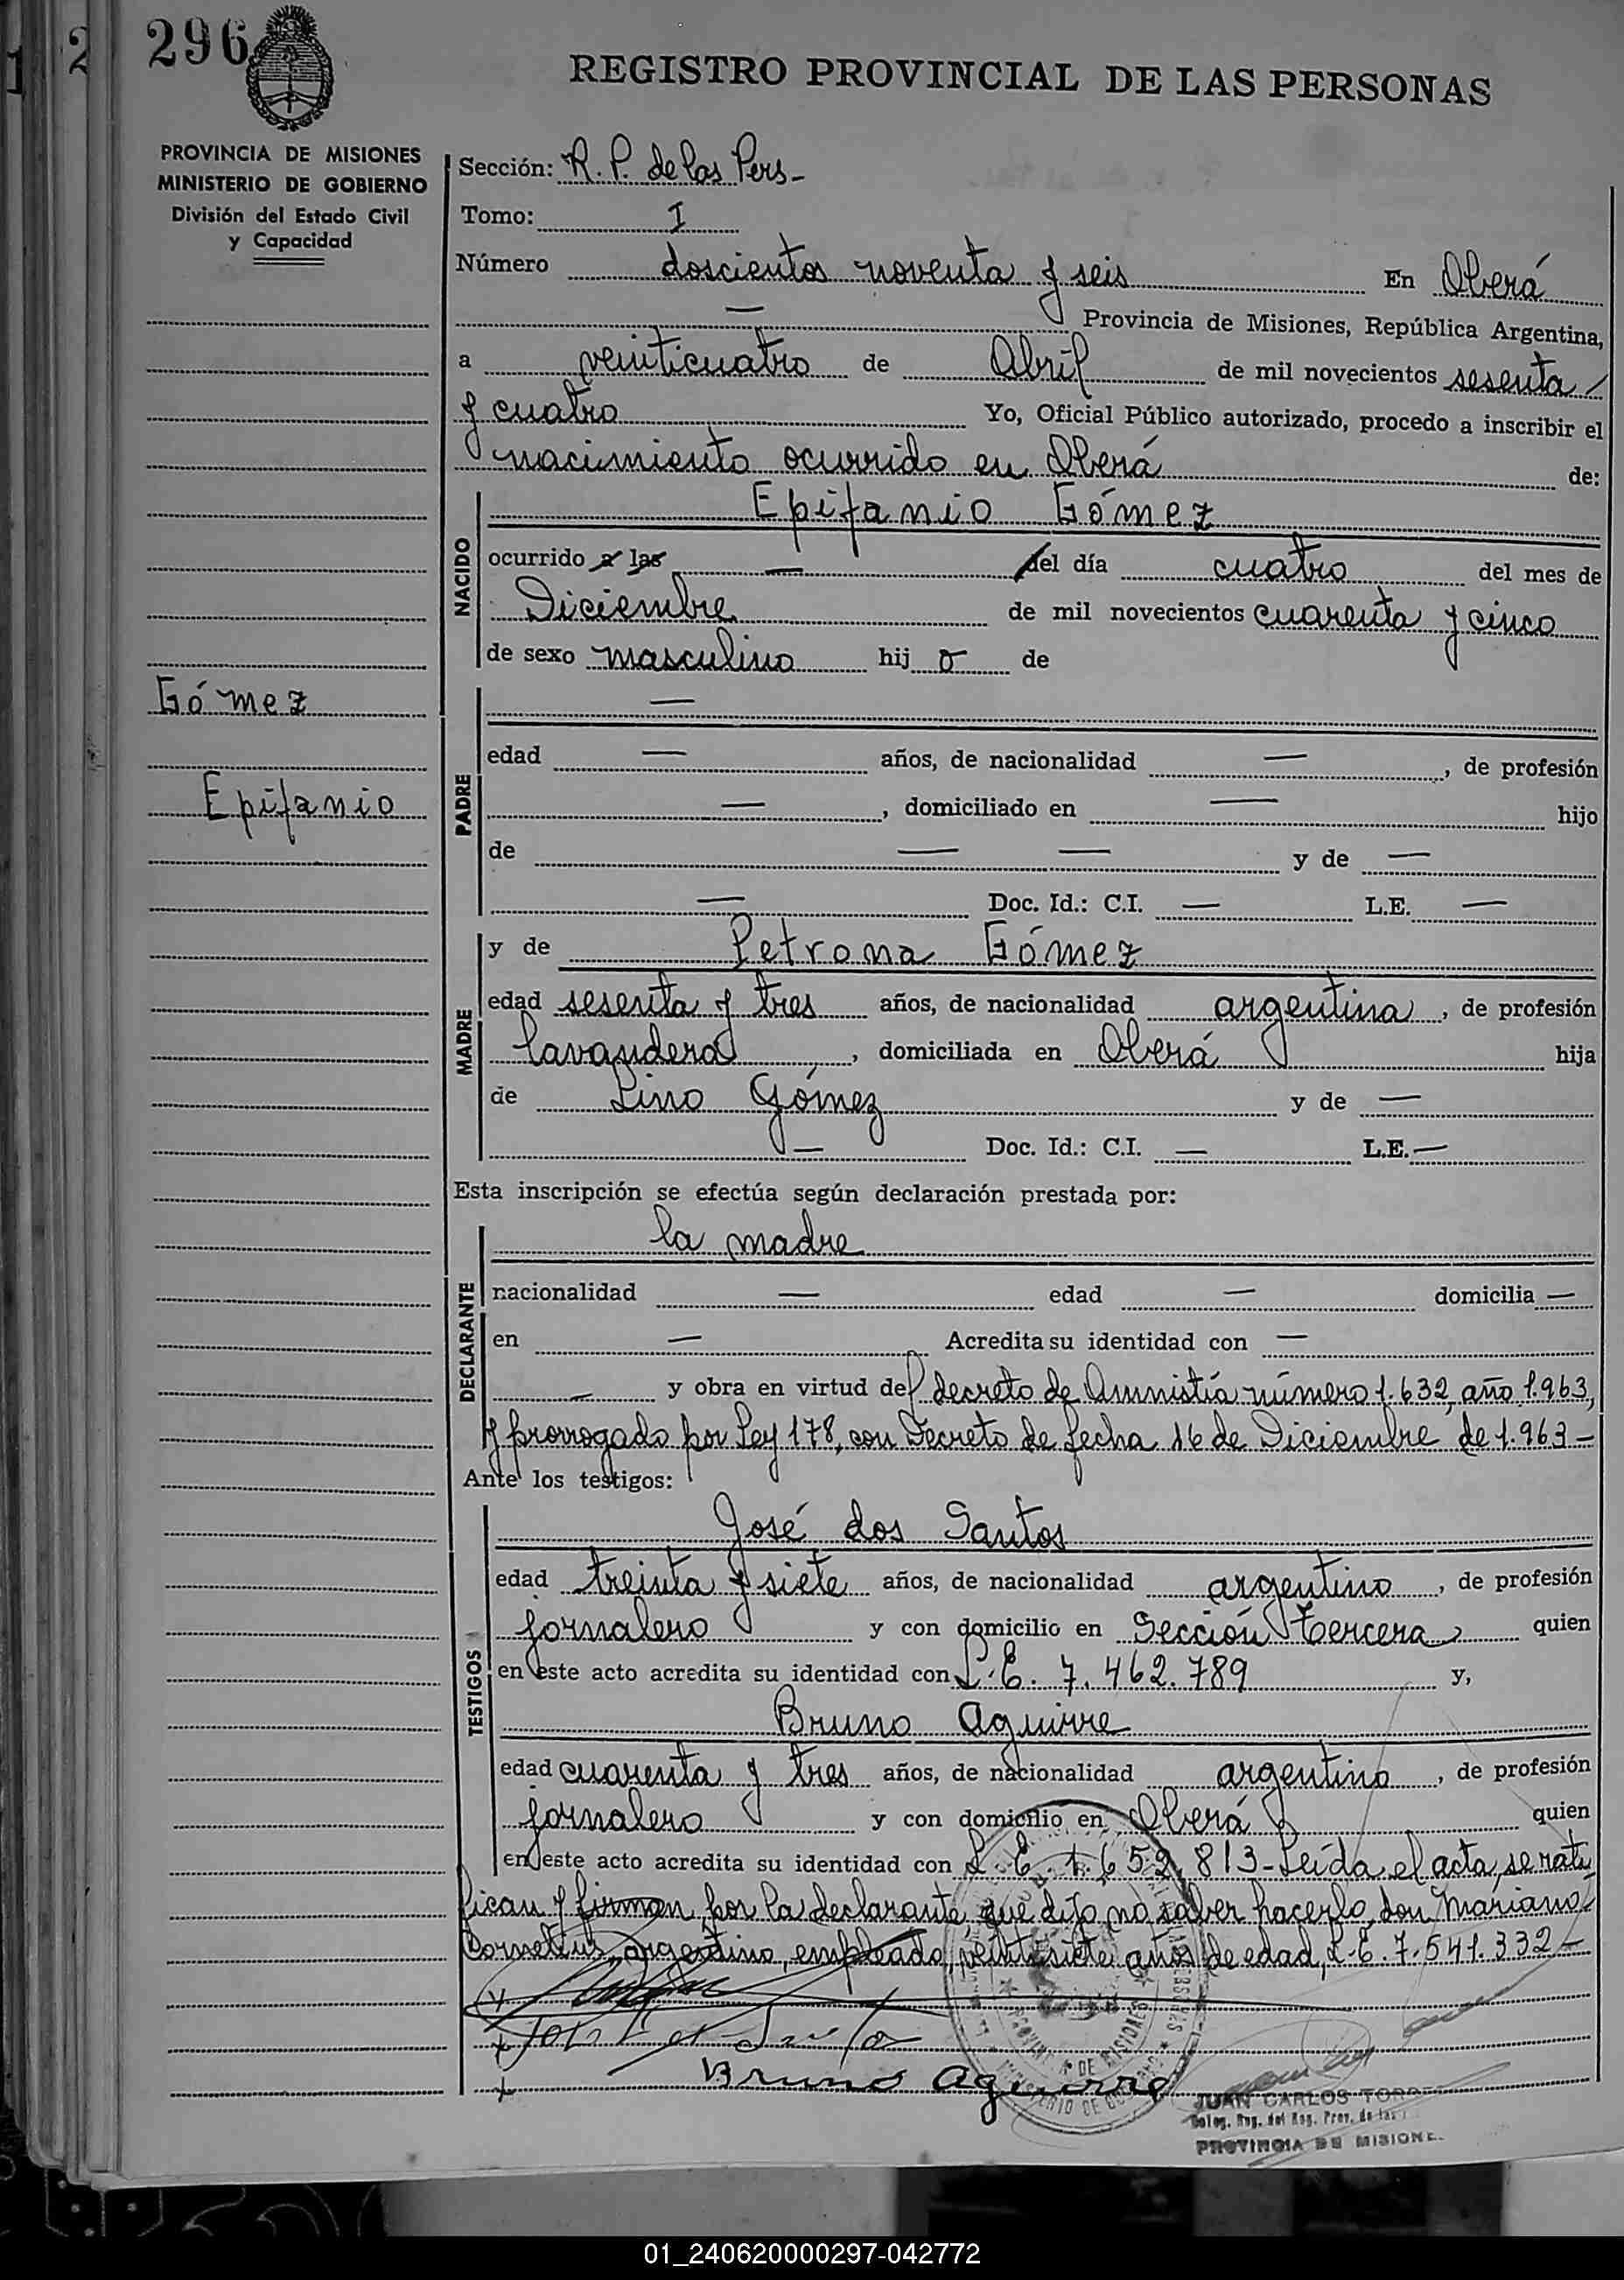 296
REGISTRO PROVINCIAL DE LAS PERSONAS
PROVINCIA DE MISIONES
MINISTERIO DE GOBIERNO
División del Estado Civil
y Capacidad
Sección: R. P. de las Pers-
Tomo: I
Número doscientos noventa y seis En Oberá
— Provincia de Misiones, República Argentina,
a veinticuatro de Abril de mil novecientos sesenta /
y cuatro Yo, Oficial Público autorizado, procedo a inscribir el
nacimiento ocurrido en Oberá de:
NACIDO
Epifanio Gómez
ocurrido a las — del día cuatro del mes de
Diciembre de mil novecientos cuarenta y cinco
de sexo masculino hij o de
Gómez
Epifanio
PADRE
—
edad — años, de nacionalidad —, de profesión
—, domiciliado en — hijo
de — — y de —
— Doc. Id.: C.I. — L.E. —
MADRE
y de Petrona Gómez
edad sesenta y tres años, de nacionalidad argentina, de profesión
lavandera, domiciliada en Oberá hija
de Lino Gómez y de —
— Doc. Id.: C.I. — L.E. —
Esta inscripción se efectúa según declaración prestada por:
DECLARANTE
la madre
nacionalidad — edad — domicilia —
en — Acredita su identidad con —
— y obra en virtud del decreto de Amnistía número 1.632, año 1.963,
y prorrogado por Ley 178, con Decreto de fecha 16 de Diciembre de 1.963-
Ante los testigos:
TESTIGOS
José dos Santos
edad treinta y siete años, de nacionalidad argentino, de profesión
jornalero y con domicilio en Sección Tercera quien
en este acto acredita su identidad con L. E. 7.462.789 y,
Bruno Aguirre
edad cuarenta y tres años, de nacionalidad argentino, de profesión
jornalero y con domicilio en Oberá quien
en este acto acredita su identidad con L. E. 1.652.813- Leída el acta, se rati
fican y firman, por la declarante, que dijo no saber hacerlo, don Mariano
Cornelius, argentino, empleado, veintisiete años de edad, L. E. 7.541.332-
Bruno Aguirre
JUAN CARLOS
PROVINCIA DE MISIONE
01_240620000297-042772